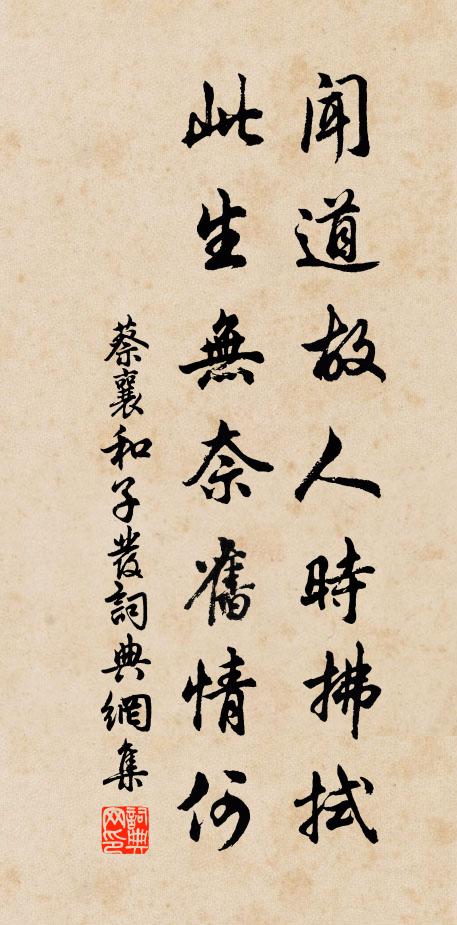 聞道故人時拂拭
此生無奈舊情何
蔡襄和子發詞典網集
詞典网印